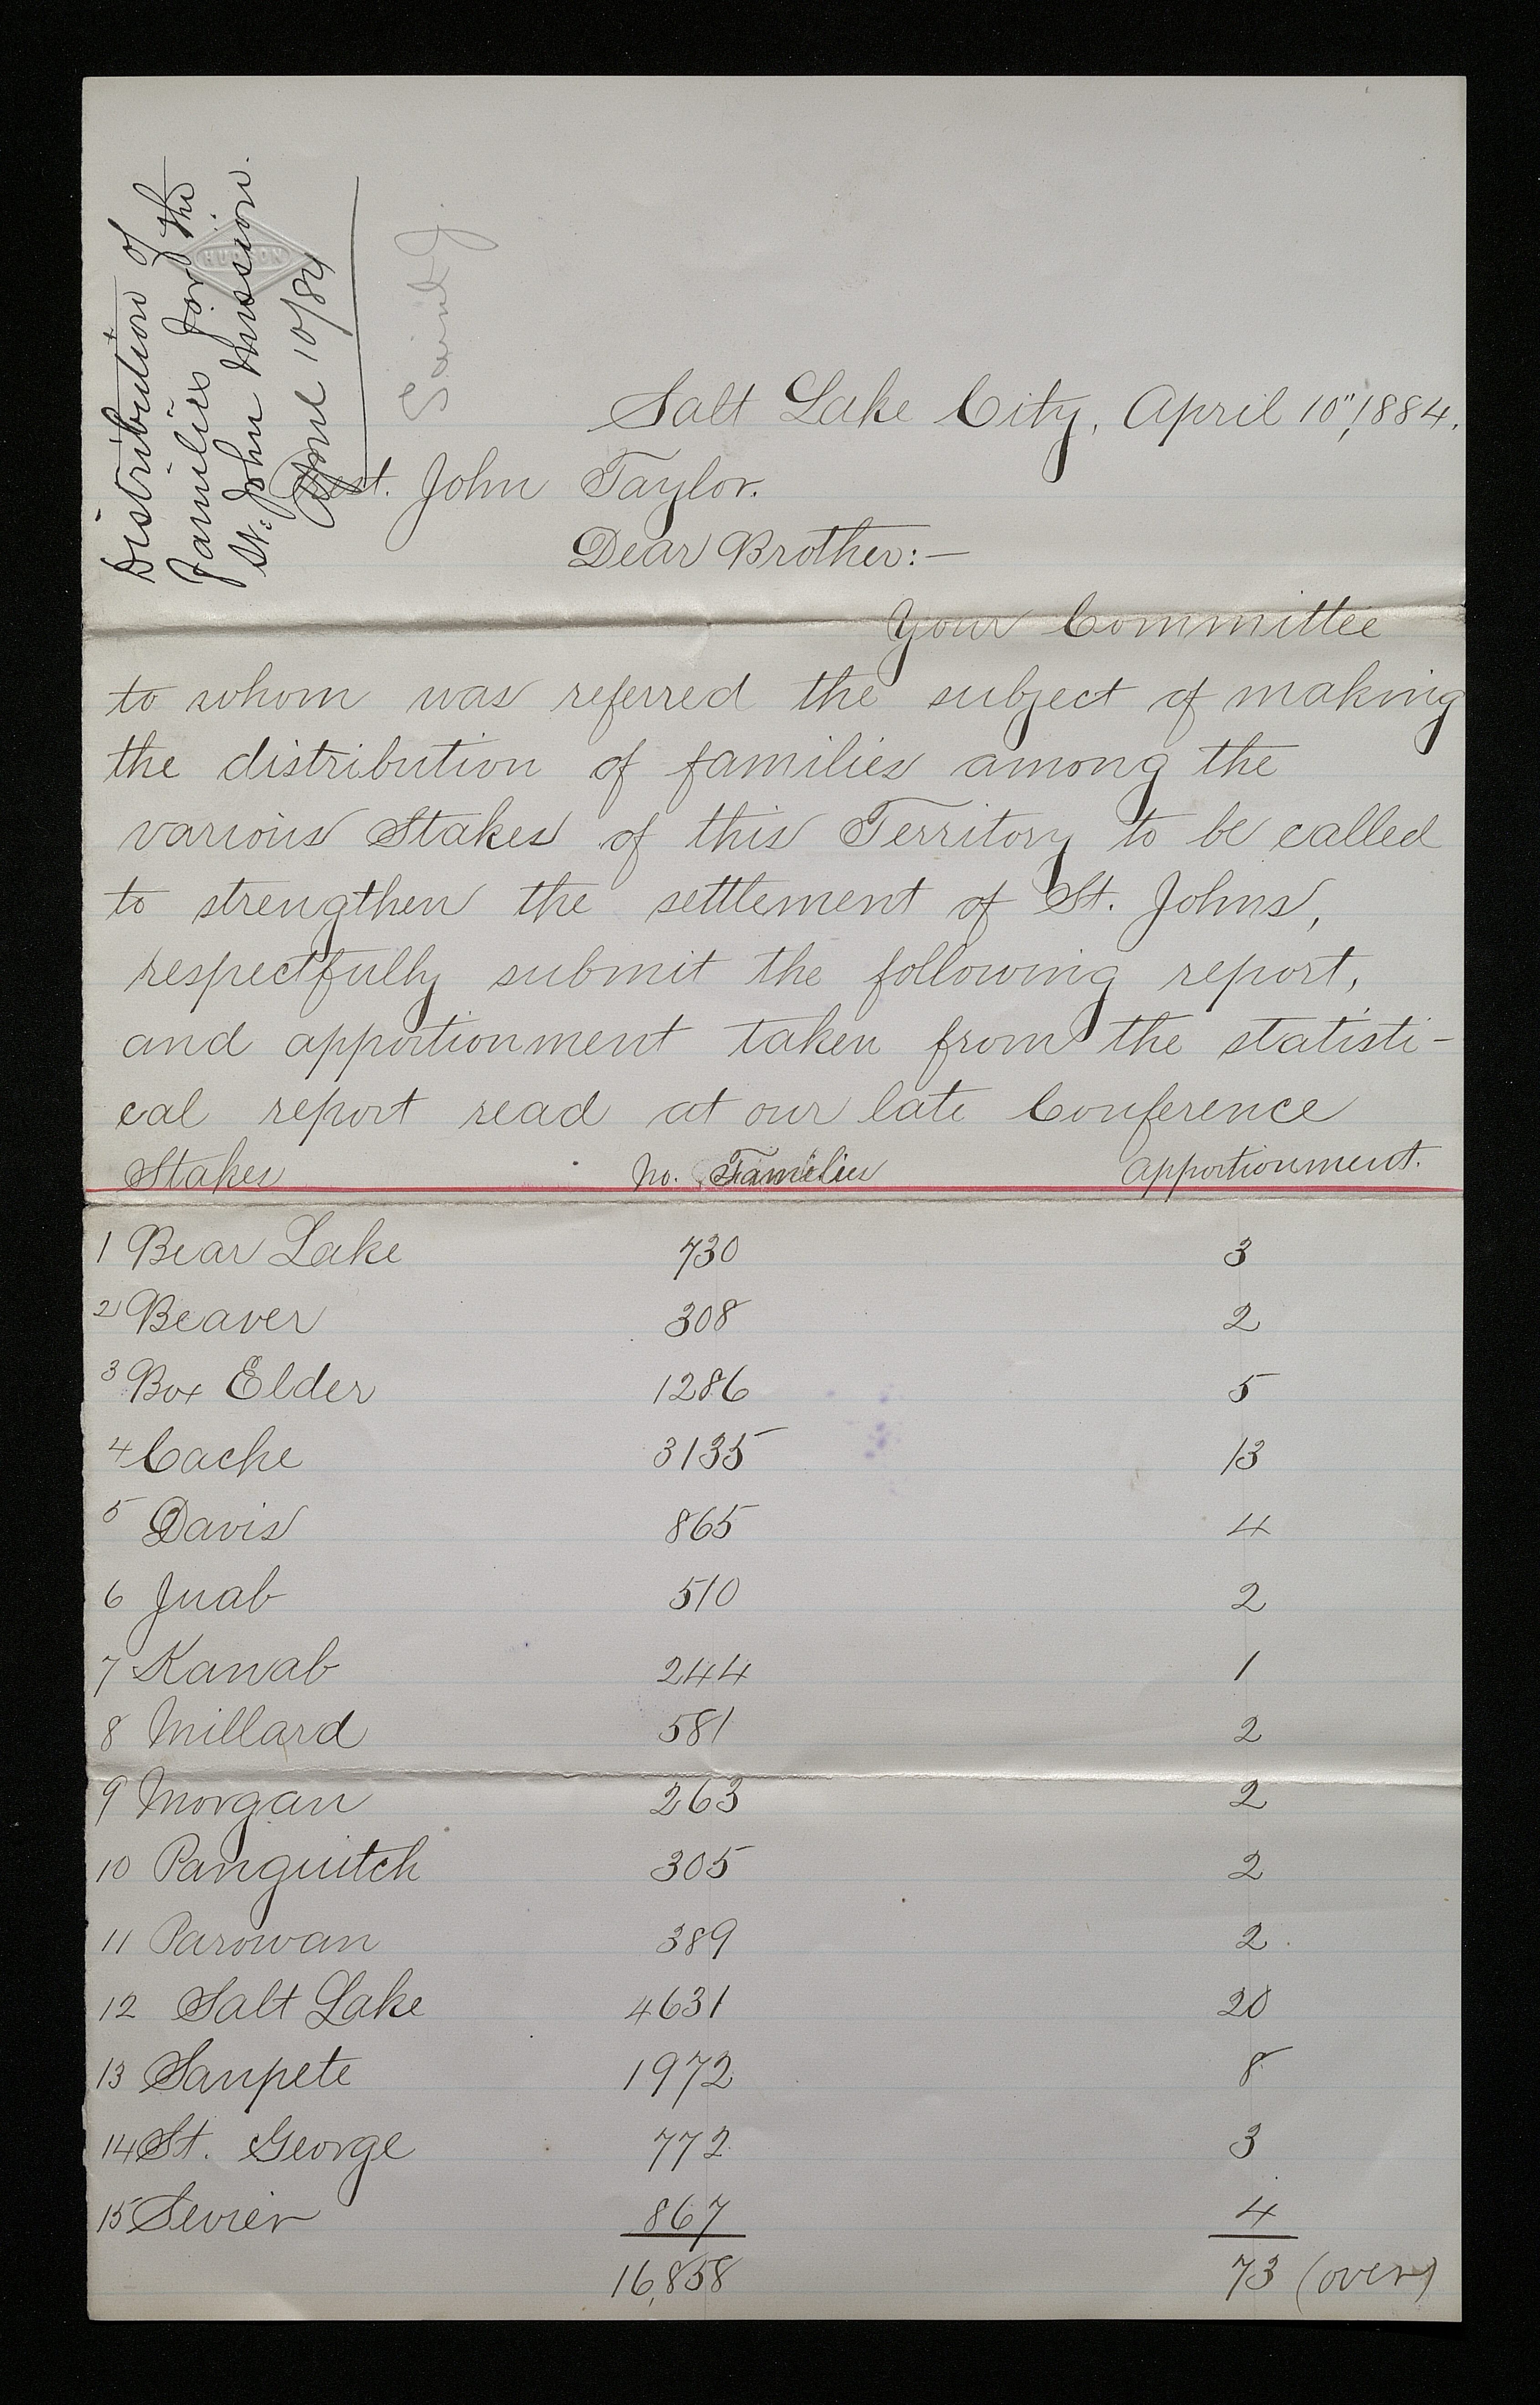 Distribution of
families for the
St. John Mission.
April 10/84
HUDSON
Salt Lake City, April 10", 1884.
Prest. John Taylor.
Dear Brother:—
Your Committee
to whom was referred the subject of making
the distribution of families among the
various Stakes of this Territory to be called
to strengthen the settlement of St. Johns,
respectfully submit the following report,
and apportionment taken from the statisti-
cal report read at our late Conference
Stakes No. Families Apportionment.
1 Bear Lake 730 3
2 Beaver 308 2
3 Box Elder 1286 5
4 Cache 3135 13
5 Davis 865 4
6 Juab 510 2
7 Kanab 244 1
8 Millard 581 2
9 Morgan 263 2
10 Panguitch 305 2
11 Parowan 389 2
12 Salt Lake 4631 20
13 Sanpete 1972 8
14 St. George 772 3
15 Sevier 867 4
16,858 73 (over)